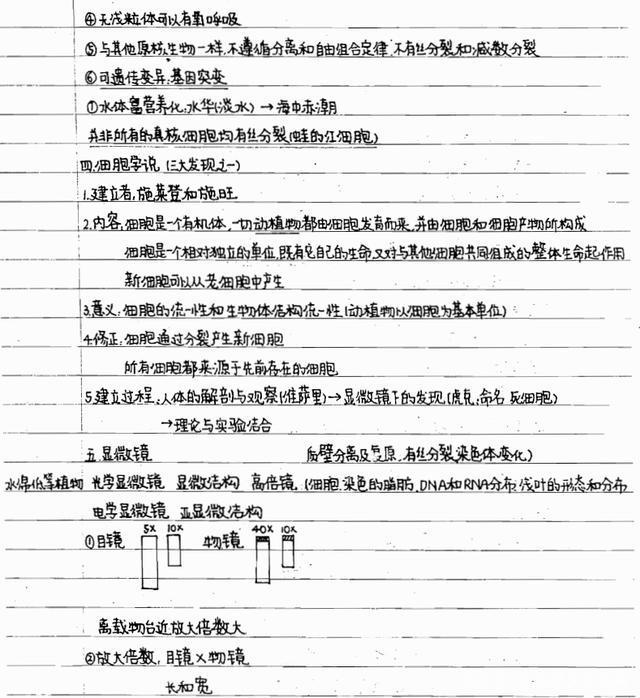 ④无线粒体可以有氧呼吸
⑤与其他原核生物一样,不遵循分离和自由组合定律,不有丝分裂和减数分裂
⑥可遗传变异:基因突变
①水体富营养化:水华(淡水)→海中赤潮
并非所有的真核细胞均有丝分裂(蛙的红细胞)
四.细胞学说(三大发现之一)
1.建立者:施莱登和施旺
2.内容:细胞是一个有机体,一切动植物都由细胞发育而来,并由细胞和细胞产物所构成
细胞是一个相对独立的单位,既有它自己的生命,又对与其他细胞共同组成的整体生命起作用
新细胞可以从老细胞中产生
3.意义:细胞的统一性和生物体结构统一性(动植物以细胞为基本单位)
4.修正:细胞通过分裂产生新细胞
所有细胞都来源于先前存在的细胞
5.建立过程:人体的解剖与观察(维萨里)→显微镜下的发现(虎克:命名 死细胞)
→理论与实验结合
五.显微镜 质壁分离及复原.有丝分裂染色体变化)
水绵低等植物 光学显微镜 显微结构 高倍镜(细胞,染色的脂肪,DNA和RNA分布,线叶的形态和分布
电学显微镜 亚显微结构
5X 10X 40X 10X
①目镜 物镜
离载物台近放大倍数大
②放大倍数:目镜×物镜
长和宽